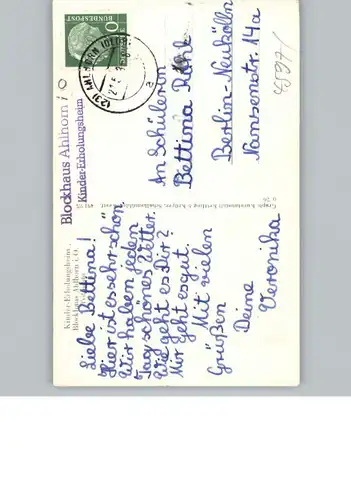 Kinder-Erholungsheim,
Blockhaus Ahlhorn i. O.
Liebe Bettina!
Hier ist es sehr schön.
Wir haben jeden
Tag schönes Wetter.
Wie geht es Dir?
Mir geht es gut.
Mit vielen
Grüßen
Deine
Veronika
Blockhaus Ahlhorn
Kinder-Erholungsheim
DEUTSCHE
BUNDESPOST
10
(23) AHLHORN (OLDB)
a
An Schülerin
Bettina Röhl
Berlin-Neukölln
Nansenstr. 14a